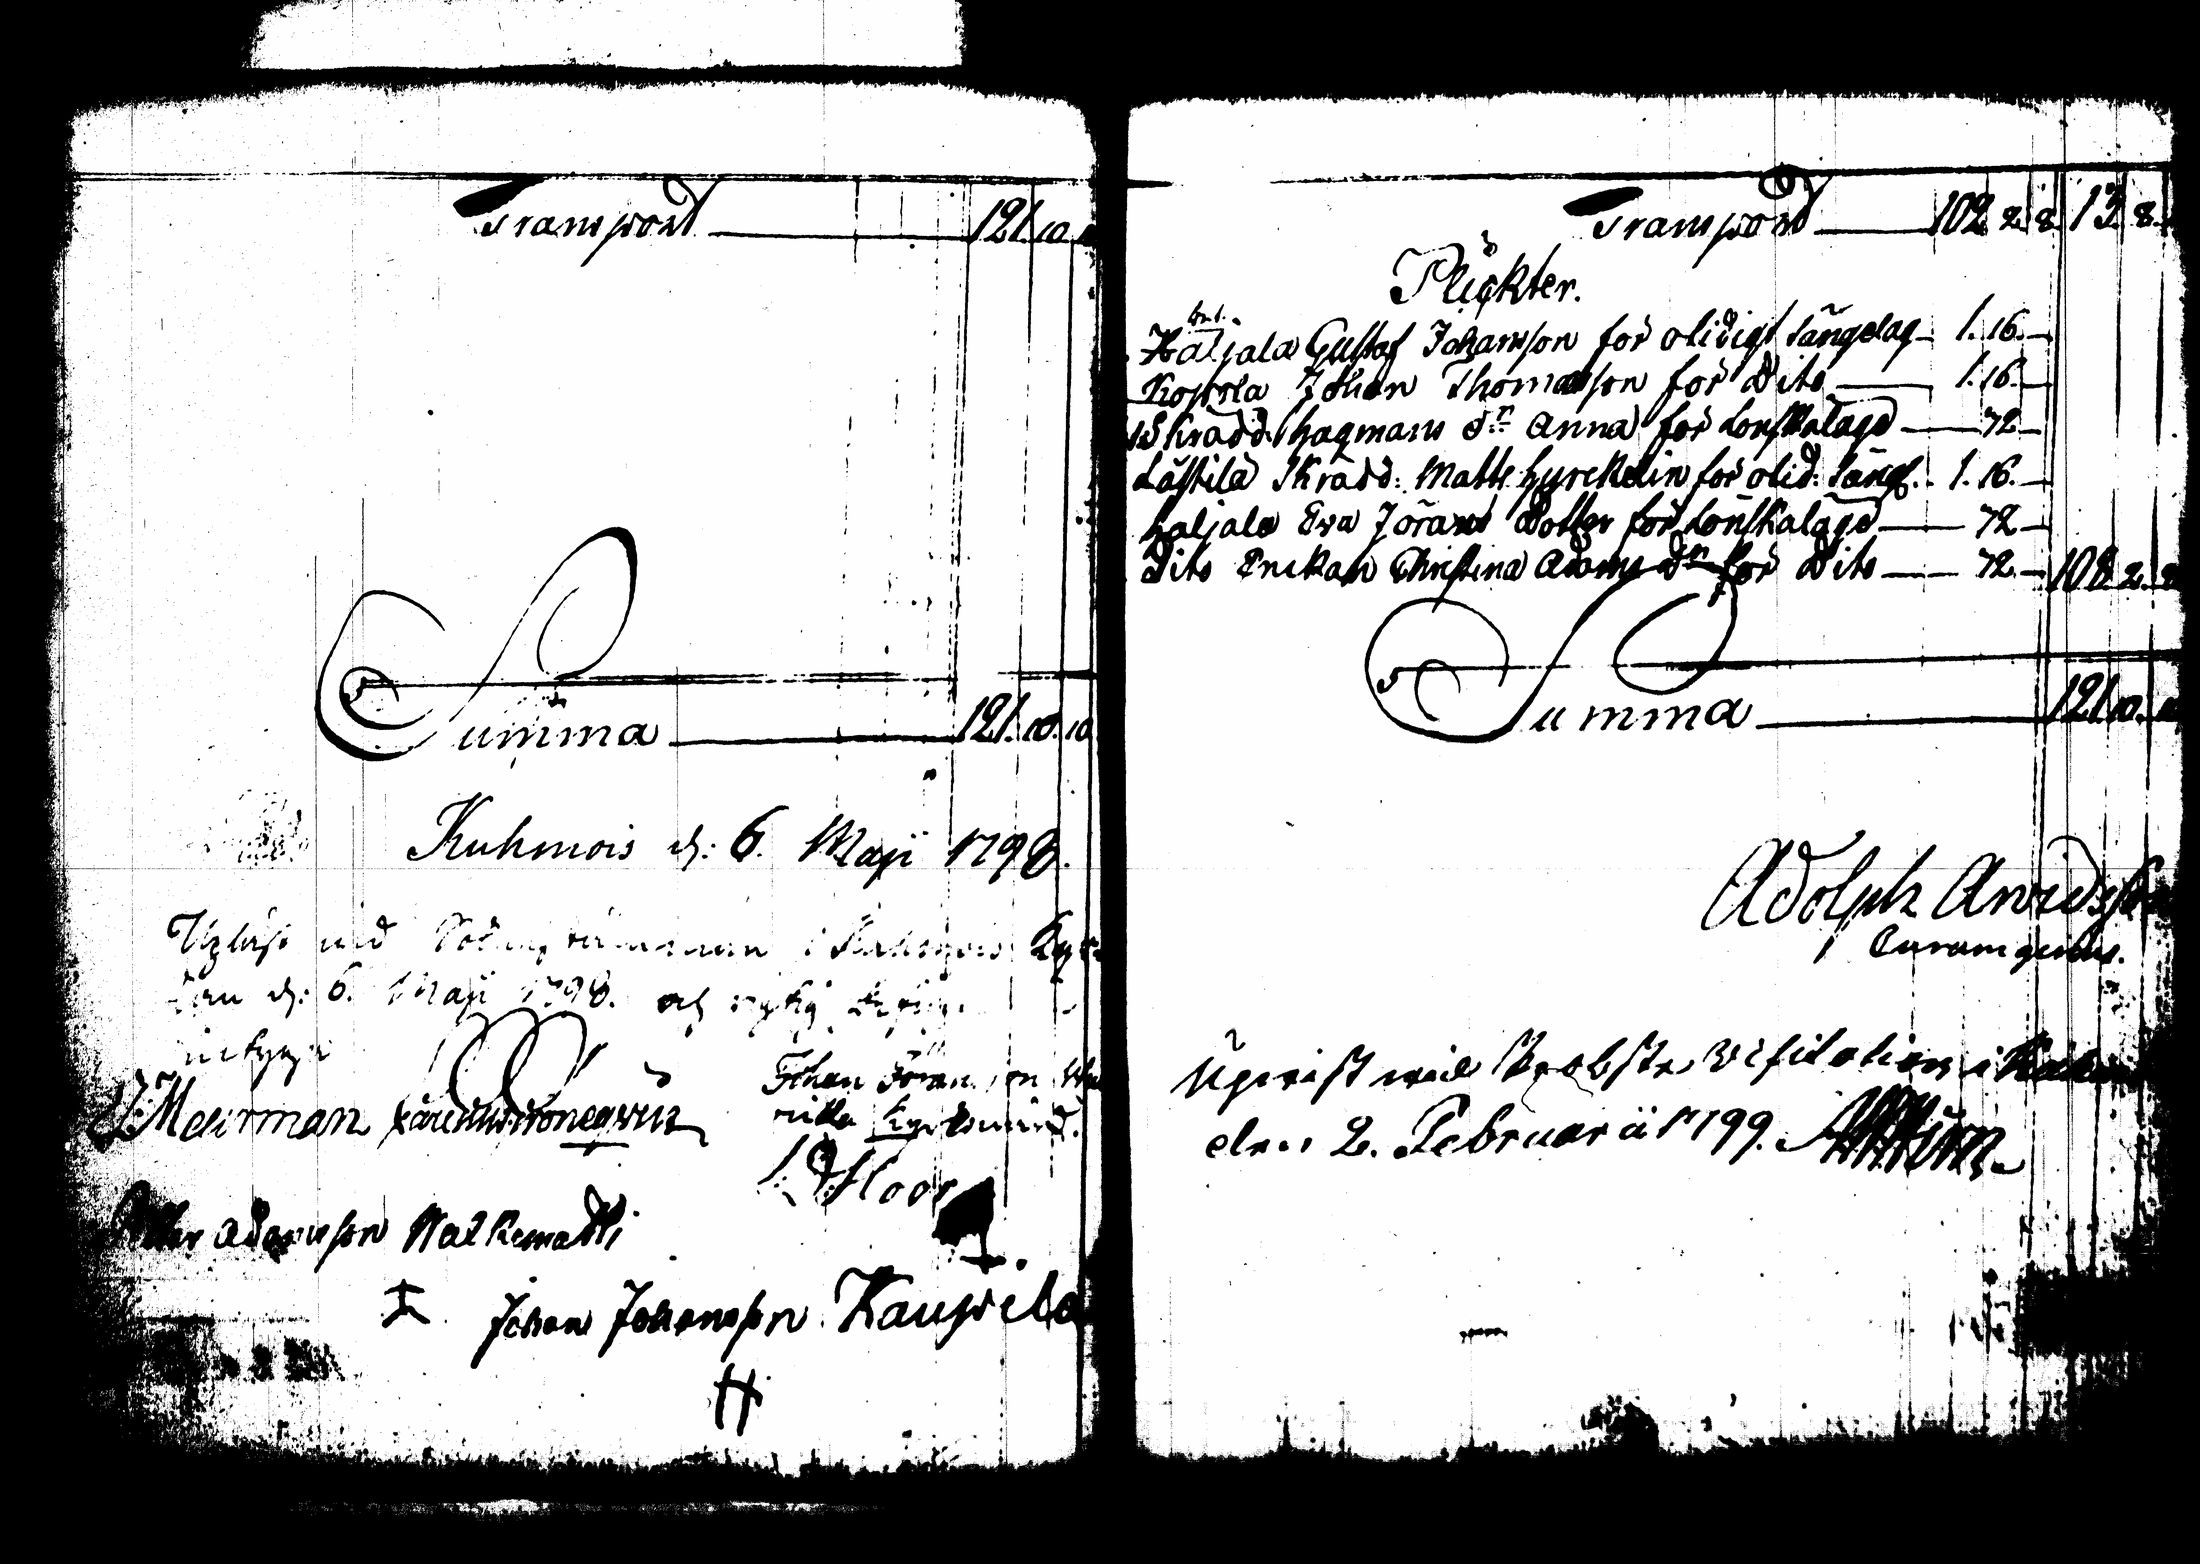 Transport 121. 10. 10
Summa 121. 10. 10
Kuhmois d: 6. Maji 1798.
Upläst vid Sockne stämman i Kuhmois Kyr-
kan d: 6. Maji 1798. och rigtig befun
intyga
Meurman
Johan Jöranson
Kyrkovärd.
Adamson Walkematti
Johan Johansson Kauppila
H
Transport 102. 2. 8. 13. 8.
Plickter.
Haljala Gustaf Johansson för olidigt sängelag 1. 16.
Johan Thomasson för Dito 1. 16.
Skrädd. Hagmans dr Anna för Lönskaläge 72
Lästilä Skrädd: Matts Hyrckelin för olid: säng. 1. 16.
Haljala Eva Jörans Dotter för Lönskaläge 72
Dito Enckan Christina Adams dr för Dito 72. 108. 2. 8
Summa 121. 10. 10
Adolph Arvidsson
Curam gerens.
Upvist vid Probste Visitation i
den 2. Februarii 1799.